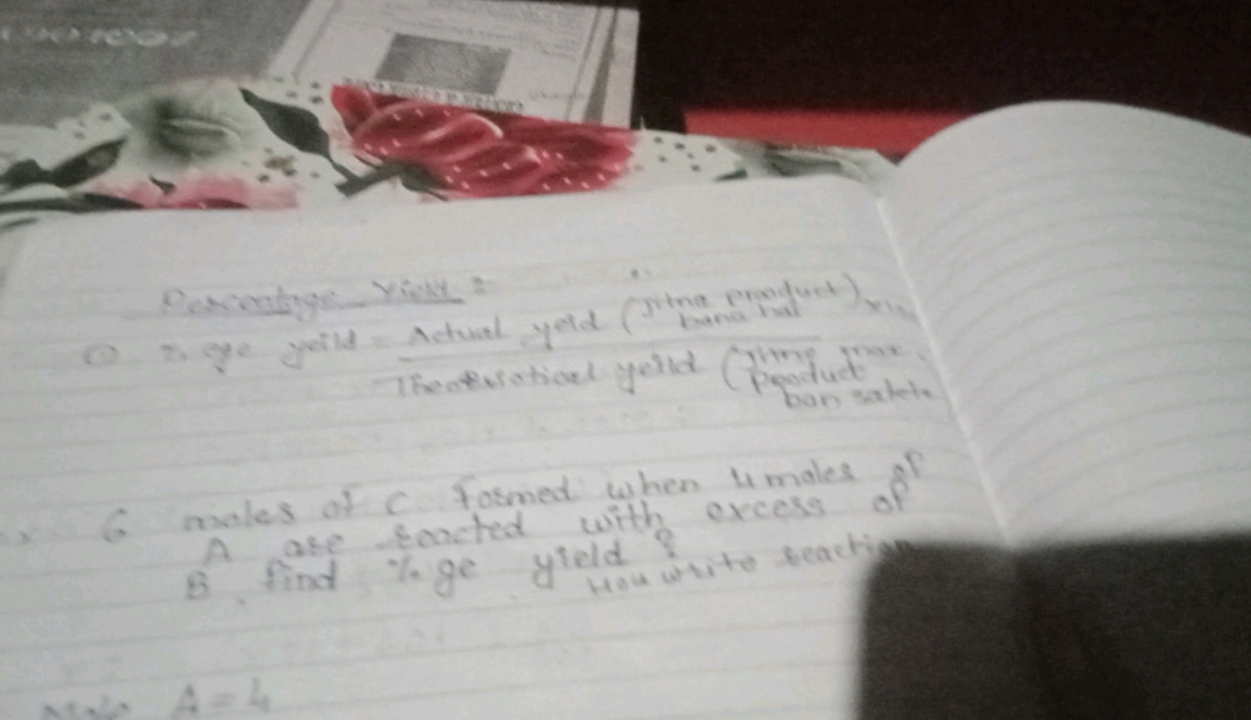 Percentage Yield :
① % ge yeild = Actual yeld (jitna product bana hai) x100
Theoretical yeild (jitna max product ban sakta
6 moles of C formed when 4 moles of
A are reacted with excess of
B. find % ge yield ?
How write reaction
Mole A = 4